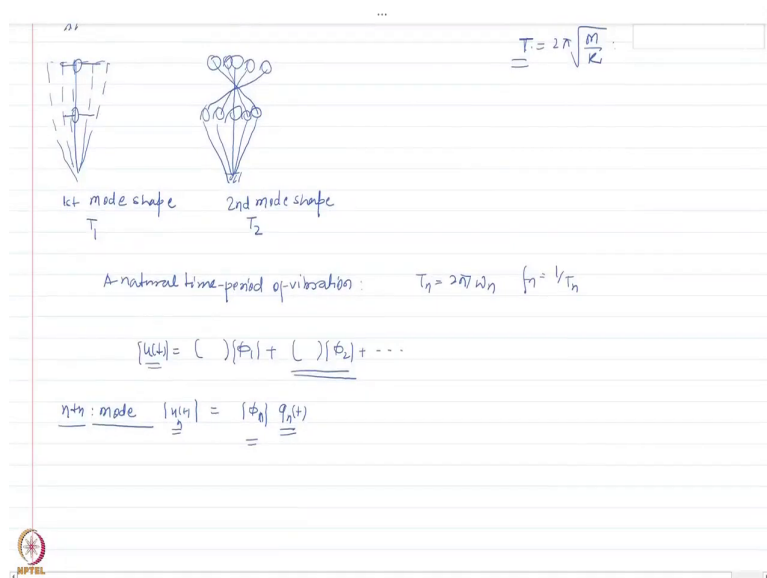 T₁ = 2π √(m/K) :
1st mode shape 2nd mode shape
T₁ T₂
A natural time-period of vibration : Tₙ = 2π ωₙ fₙ = 1/Tₙ
{u(t)} = ( ){ϕ₁} + ( ){ϕ₂} + ...
nth : mode {uₙ(t)} = {ϕₙ} qₙ(t)
NPTEL